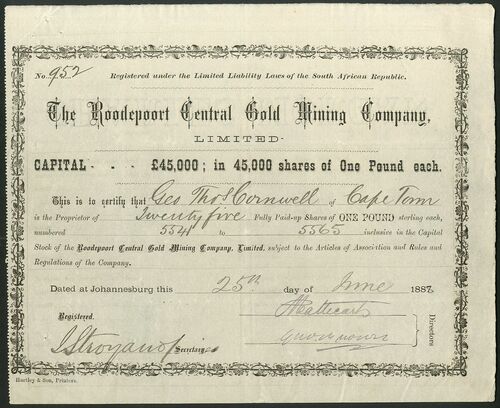 No. 952 Registered under the Limited Liability Laws of the South African Republic.
The Roodepoort Central Gold Mining Company,
LIMITED
CAPITAL - - - £45,000; in 45,000 shares of One Pound each.
This is to certify that Geo Thos Cornwell of Cape Town
is the Proprietor of Twenty five Fully Paid-up Shares of ONE POUND sterling each,
numbered 5541 to 5565 inclusive in the Capital
Stock of the Roodepoort Central Gold Mining Company, Limited, subject to the Articles of Association and Rules and
Regulations of the Company.
Dated at Johannesburg this 25th day of June 1887.
Registered.
Secretary.
Directors
Hartley & Son, Printers.